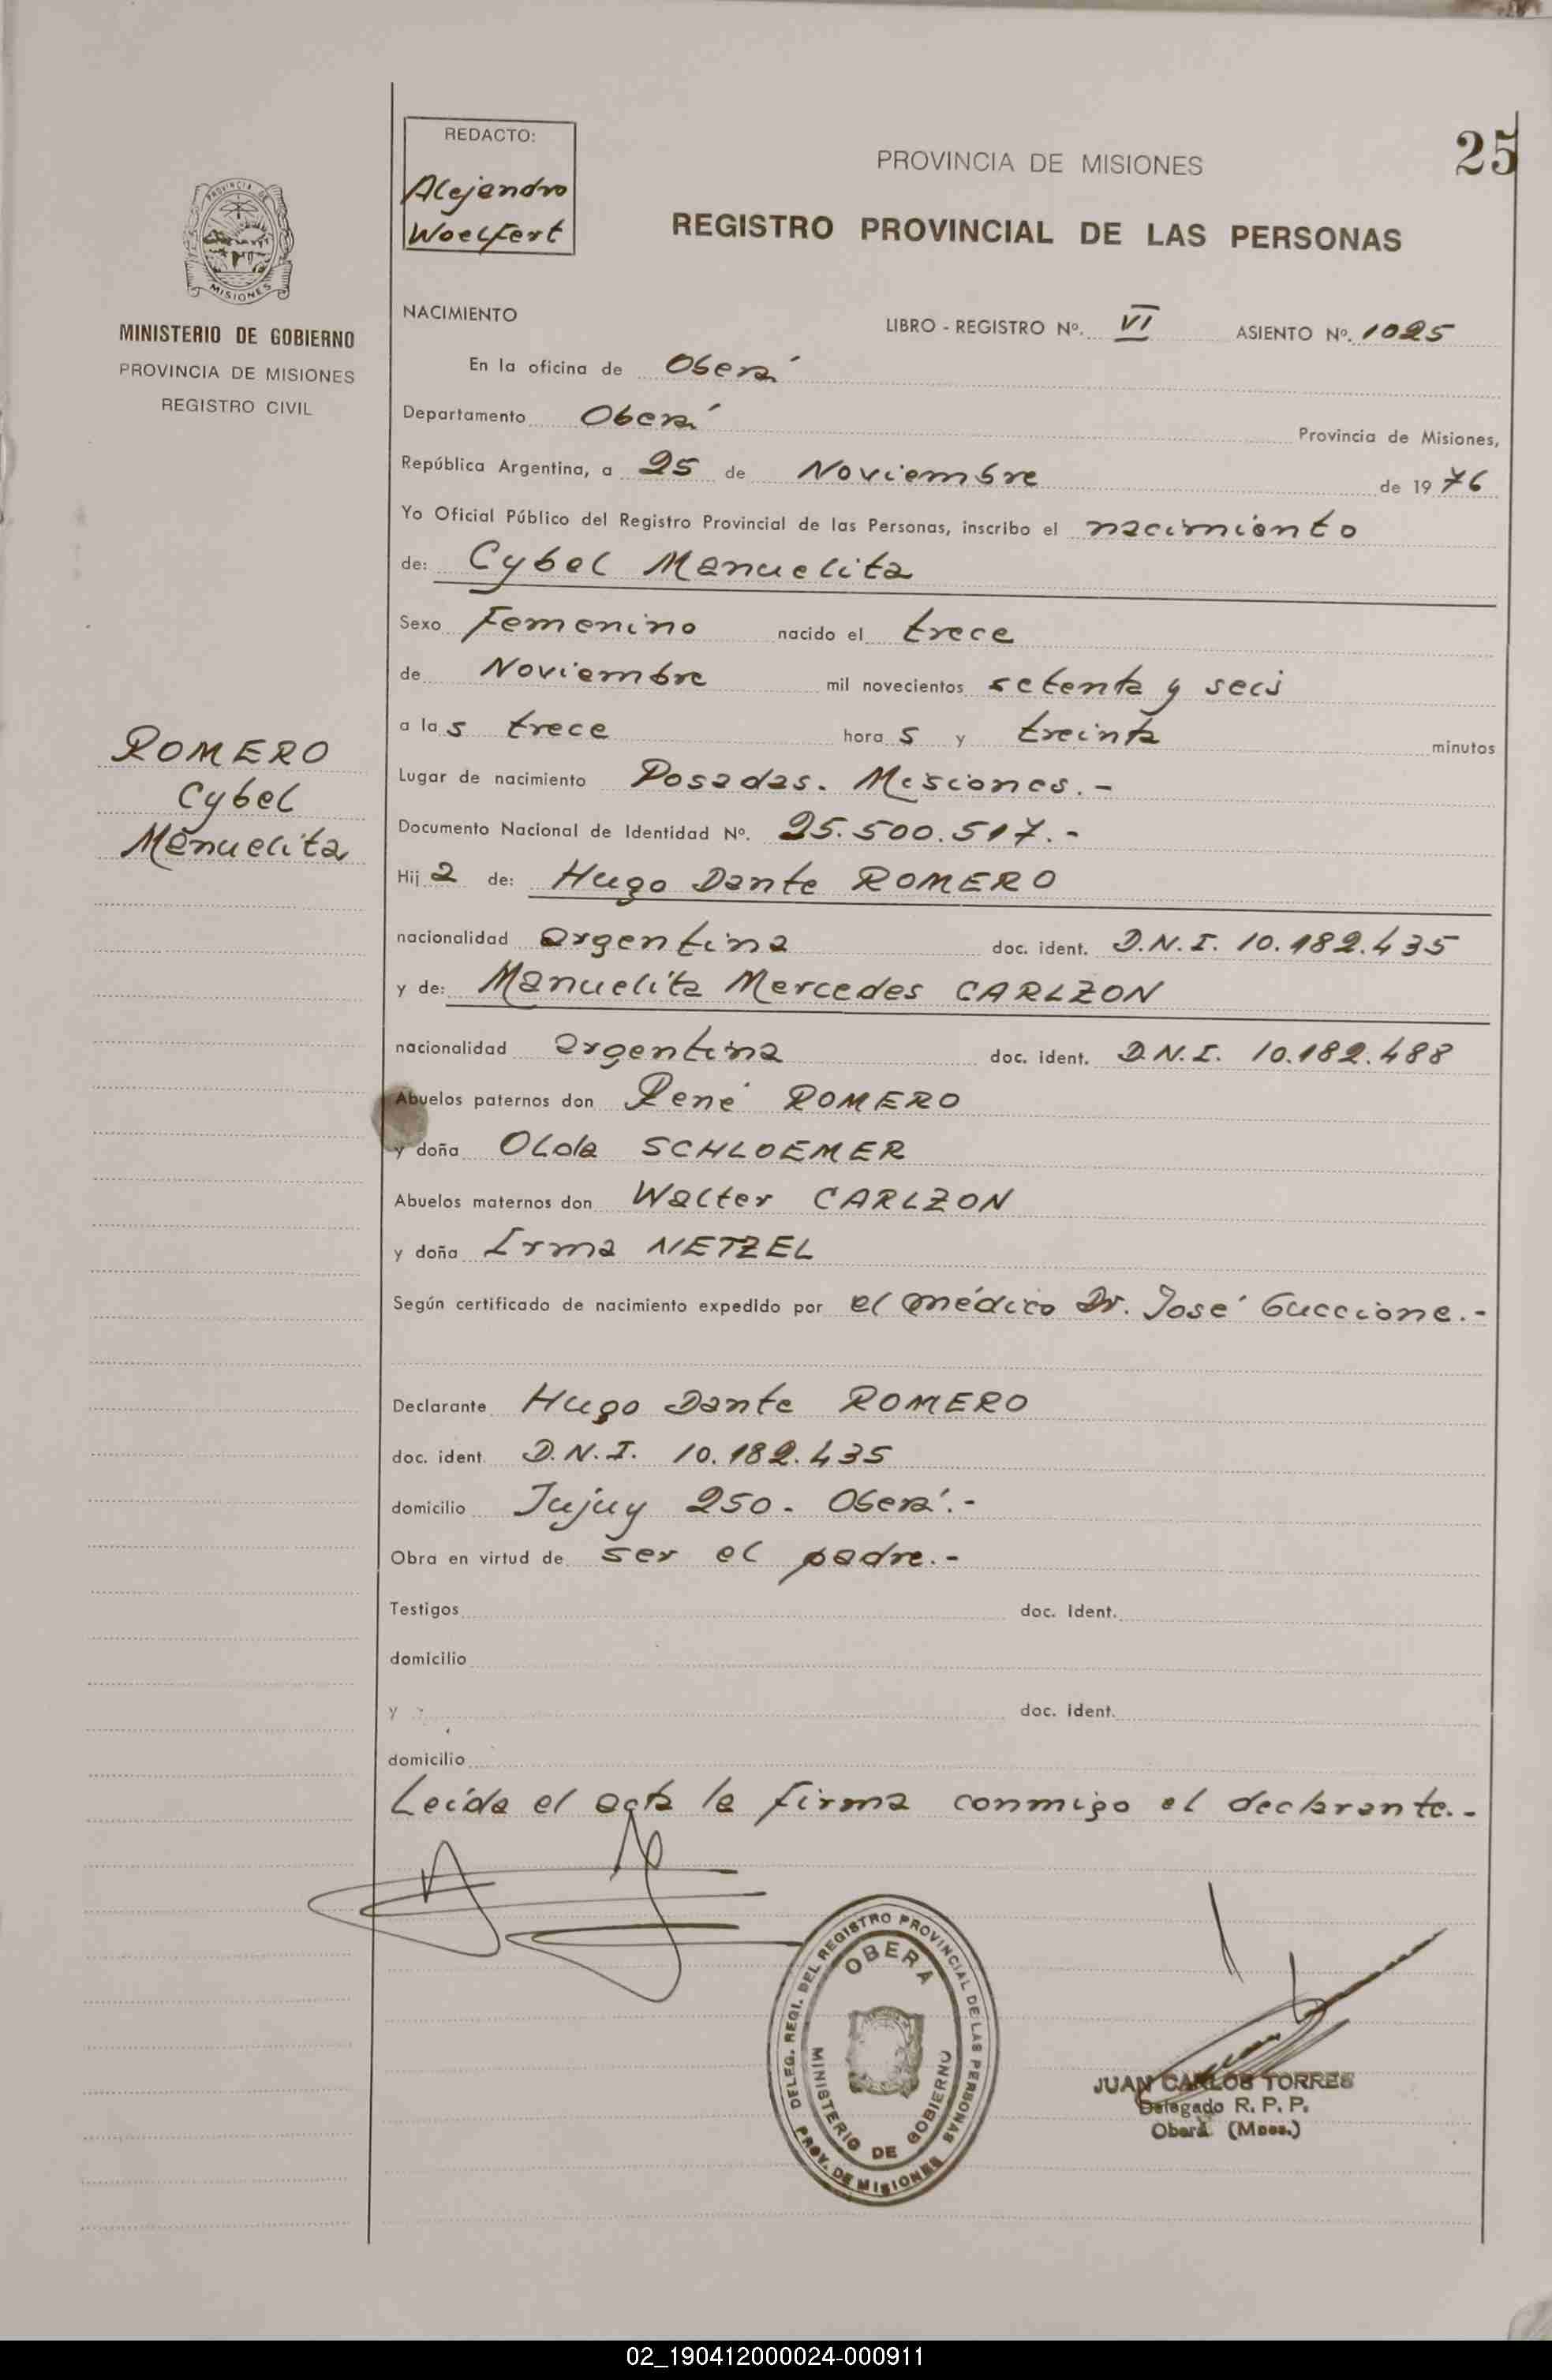 25
REDACTO:
Alejandro
Woelfert
PROVINCIA DE MISIONES
REGISTRO PROVINCIAL DE LAS PERSONAS
PROVINCIA DE
MISIONES
MINISTERIO DE GOBIERNO
PROVINCIA DE MISIONES
REGISTRO CIVIL
ROMERO
Cybel
Manuelita
NACIMIENTO LIBRO - REGISTRO Nº. VI ASIENTO Nº. 1025
En la oficina de Oberá
Departamento Oberá Provincia de Misiones,
República Argentina, a 25 de Noviembre de 19 76
Yo Oficial Público del Registro Provincial de las Personas, inscribo el nacimiento
de: Cybel Manuelita
Sexo Femenino nacido el trece
de Noviembre mil novecientos setenta y seis
a las trece horas y treinta minutos
Lugar de nacimiento Posadas. Misiones.-
Documento Nacional de Identidad Nº. 25.500.517.-
Hija de: Hugo Dante ROMERO
nacionalidad argentina doc. ident. D.N.I. 10.182.435
y de: Manuelita Mercedes CARLZON
nacionalidad argentina doc. ident. D.N.I. 10.182.488
Abuelos paternos don René ROMERO
y doña Olda SCHLOEMER
Abuelos maternos don Walter CARLZON
y doña Irma NETZEL
Según certificado de nacimiento expedido por el médico Dr. José Guccione.-
Declarante Hugo Dante ROMERO
doc. ident. D.N.I. 10.182.435
domicilio Jujuy 250. Oberá.-
Obra en virtud de ser el padre.-
Testigos doc. Ident.
domicilio
y doc. ident.
domicilio
Leída el acta la firma conmigo el declarante.-
DELEG. REGI. DEL REGISTRO PROVINCIAL DE LAS PERSONAS
OBERA
MINISTERIO DE GOBIERNO
PROV. DE MISIONES
JUAN CARLOS TORRES
Delegado R. P. P.
Oberá (Mnes.)
02_190412000024-000911